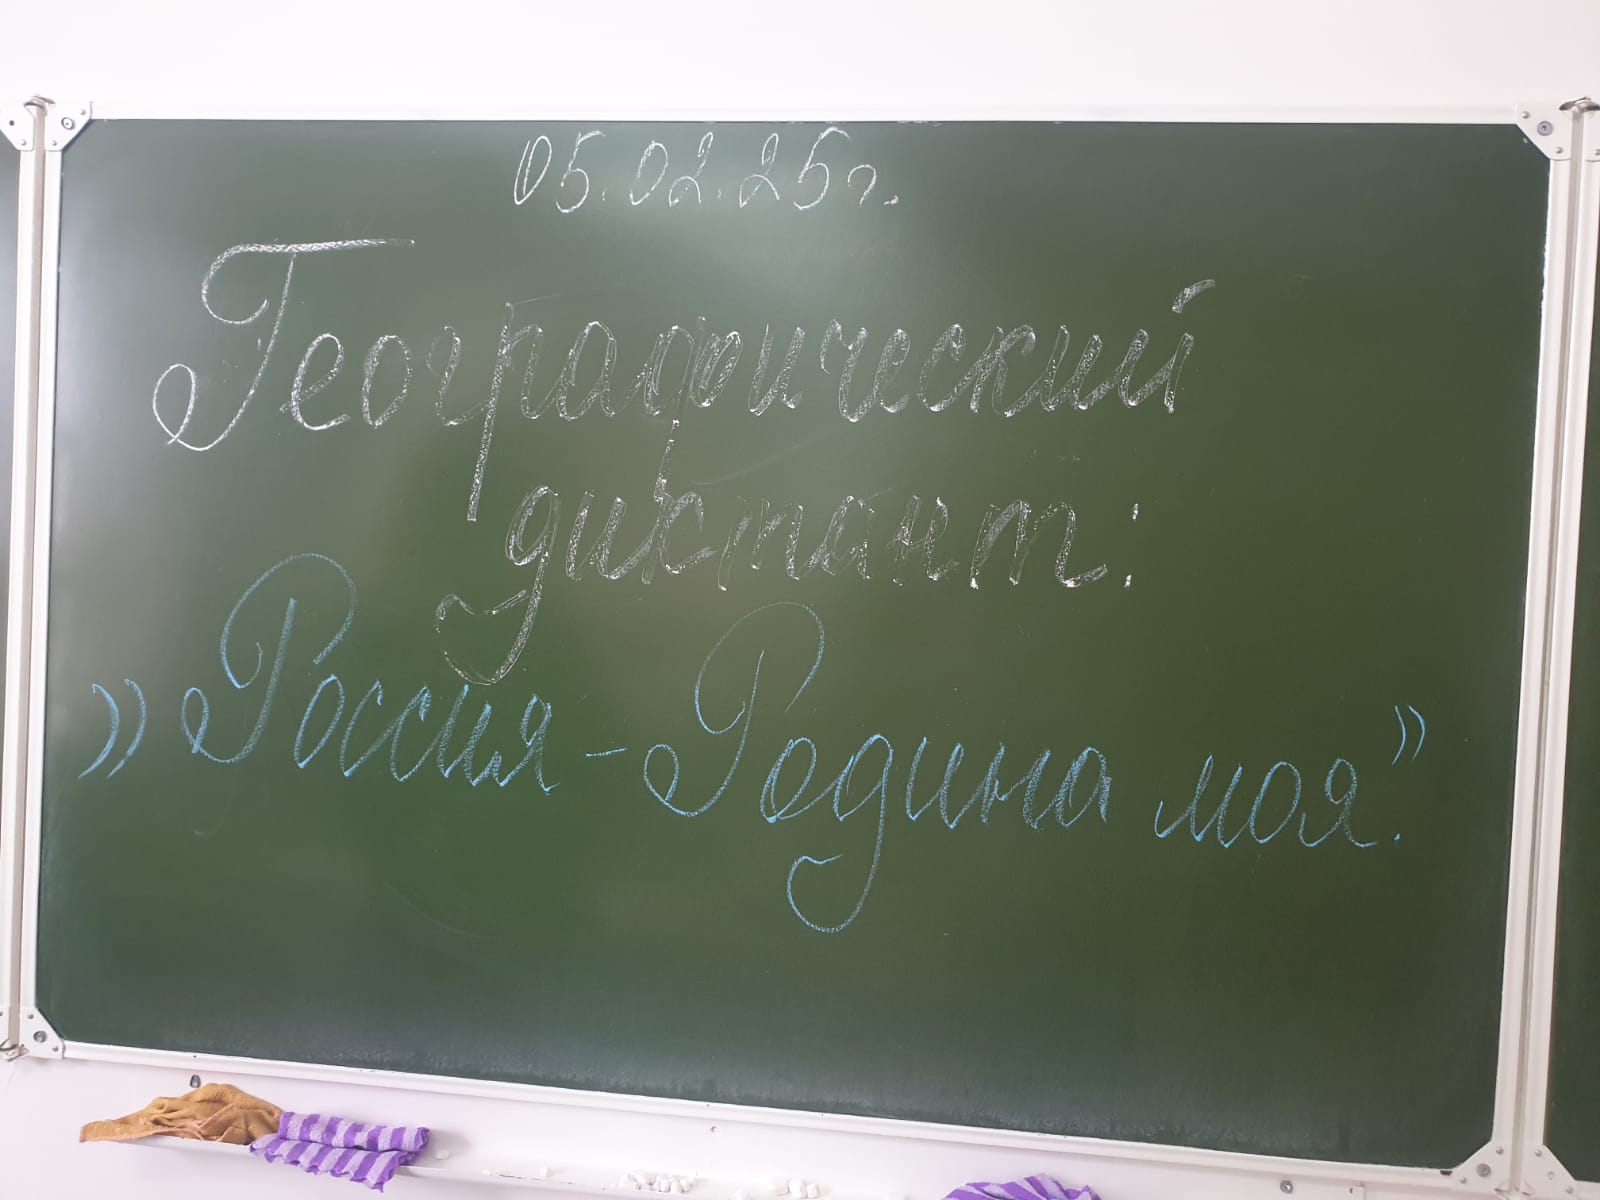 05.02.25г.
Географический
диктант:
"Россия - Родина моя."